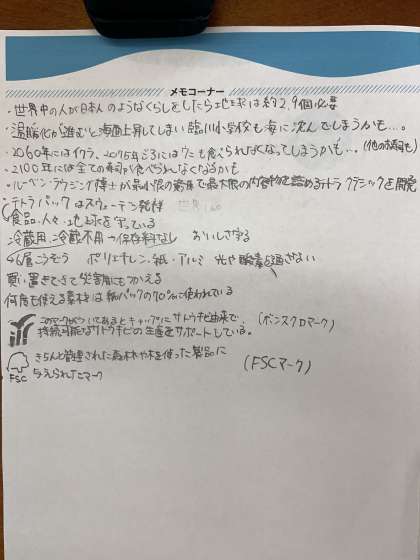 メモコーナー
・世界中の人が日本人のようなくらしをしたら地球は約2.9個必要
・温暖化が進むと海面上昇してしまい臨川小学校も海に沈んでしまうかも…。
・2060年にはイクラ、2075年ごろにはウニも食べられなくなってしまうかも…。(他の寿司も)
・2100年には全ての寿司が食べられなくなるかも
・ルーベン・ラウジング博士が最小限の資源で最大限の内容物を詰めるテトラクラシックを開発
・テトラパックはスウェーデン発祥
食品、人、地球を守っている
冷蔵用、冷蔵不用→保存料なし おいしさ守る
6層こうぞう ポリエチレン・紙・アルミ 光や酸素を通さない
買い置きできて災害用にもつかえる
何度も使える素材は紙パックの70%に使われている
このマークがついてあるとキャップにサトウキビ由来で、(ボンスクロマーク)
持続可能なサトウキビの生産をサポートしている。
きちんと管理された森林や木を使った製品に (FSCマーク)
FSC 与えられたマーク